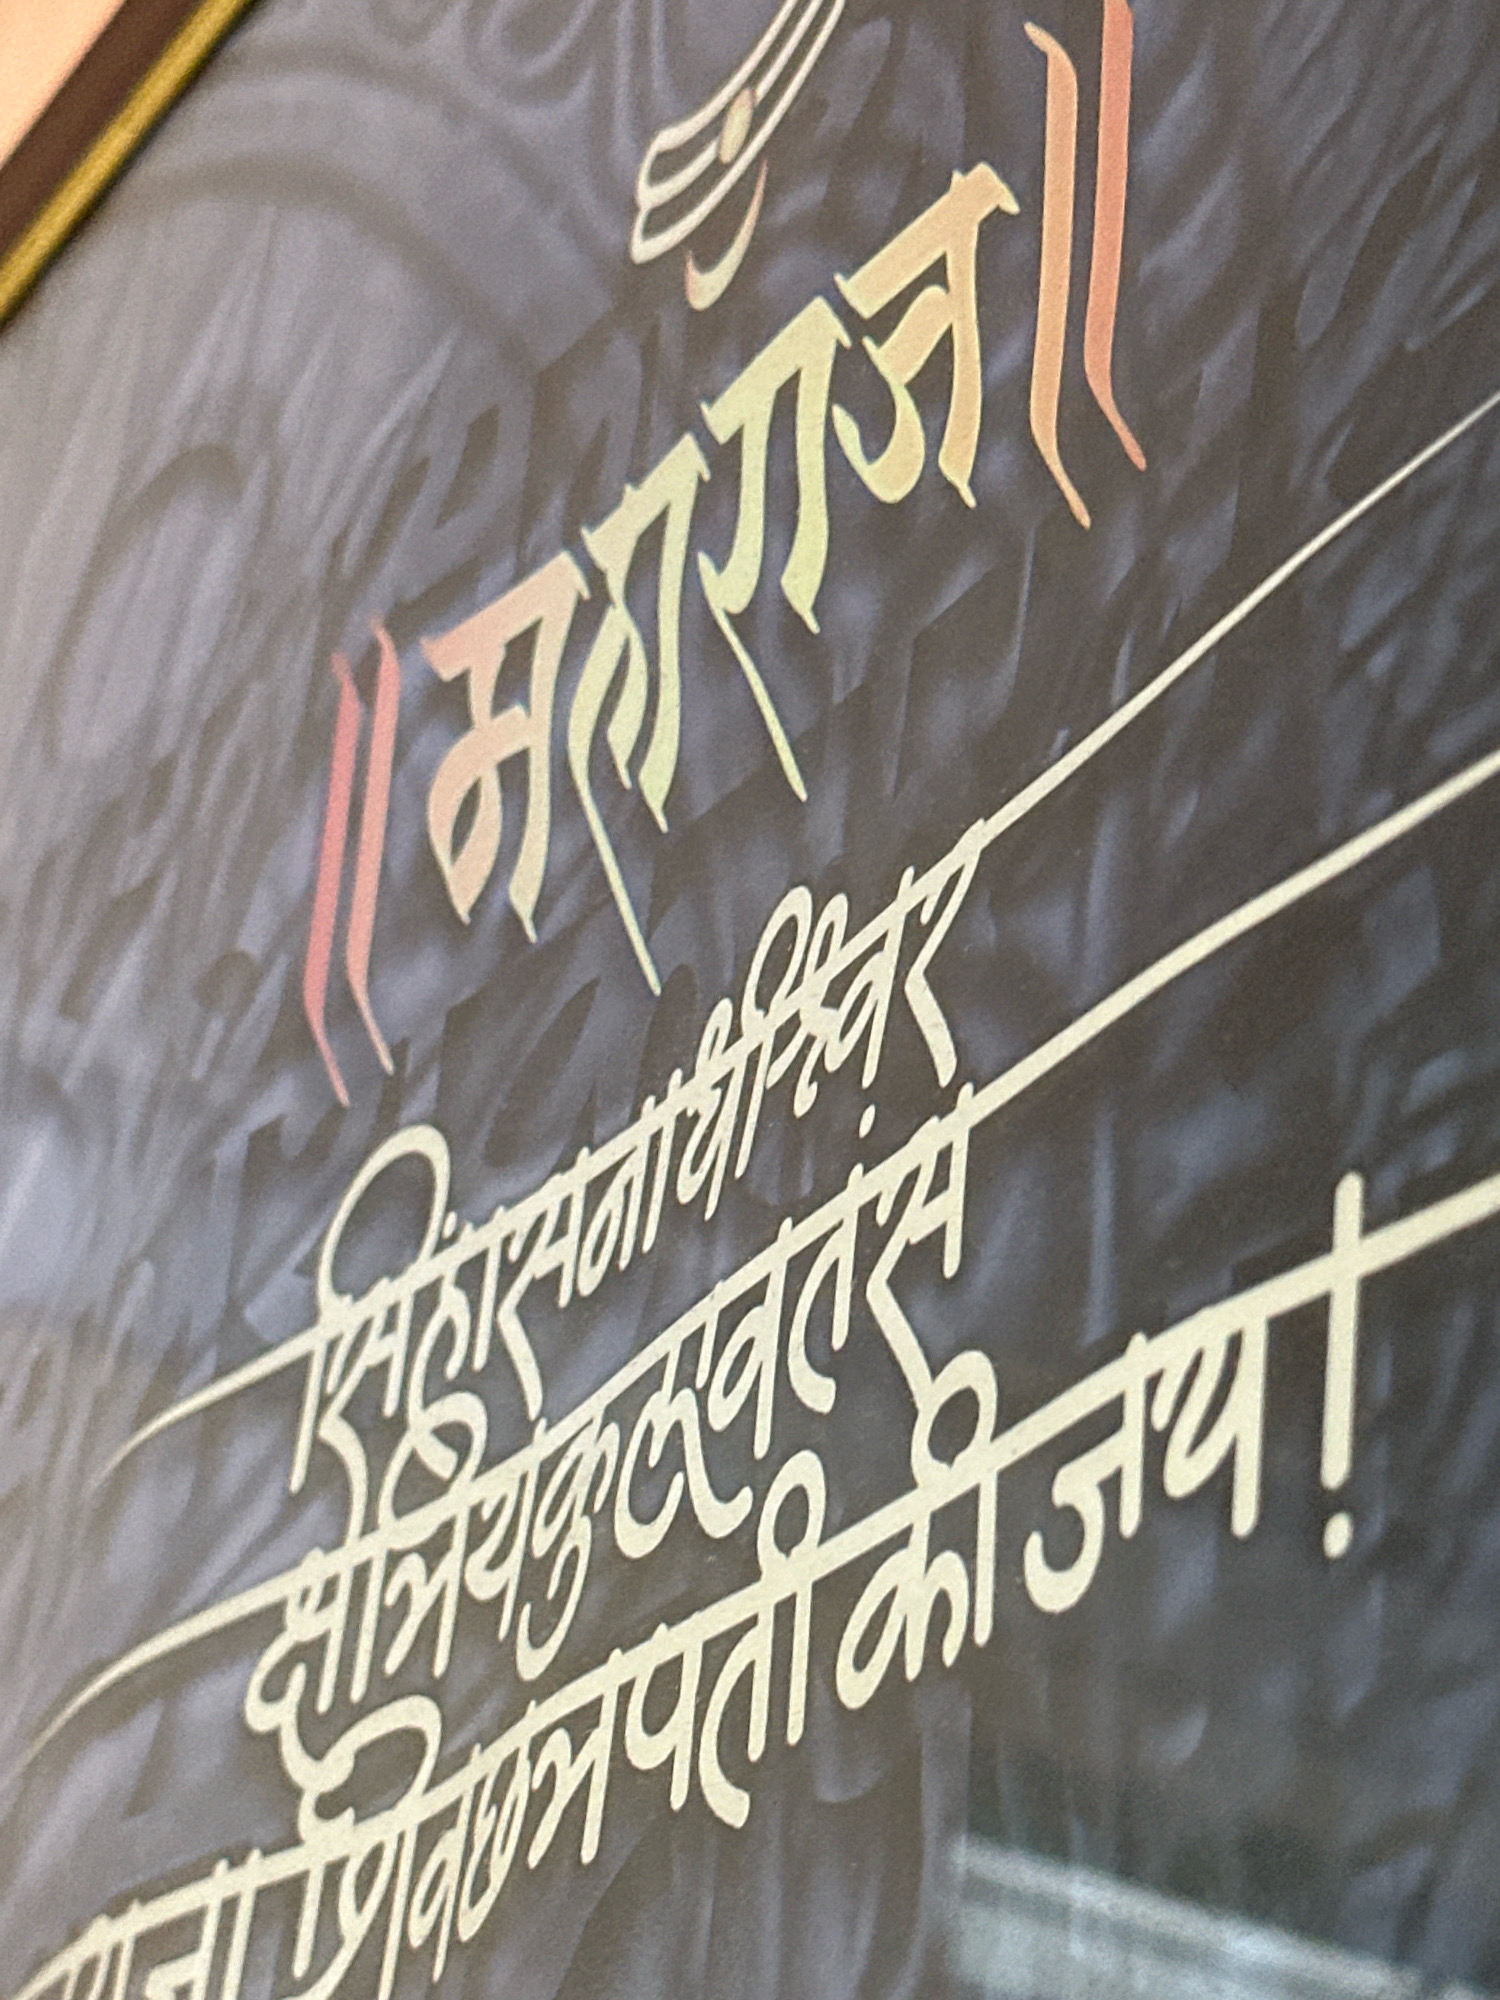 ॥ महाराज ॥
सिंहासनाधीश्वर
क्षत्रियकुलावतंस
राजा शिवछत्रपती की जय!